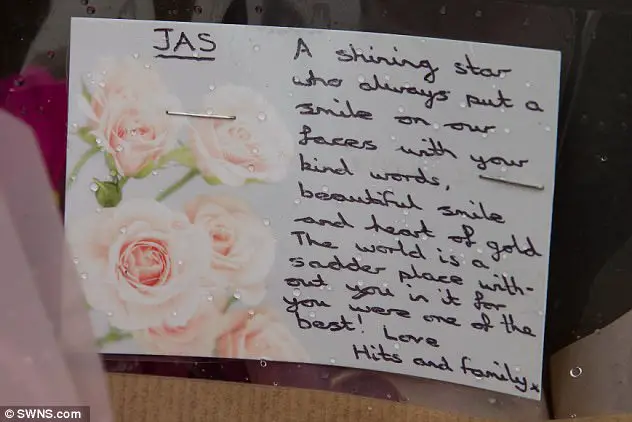 JAS
A shining star
who always put a
smile on our
faces with your
kind words,
beautiful smile
and heart of gold
The world is a
sadder place with-
out you in it for
you were one of the
best! Love
Hits and family x
© SWNS.com